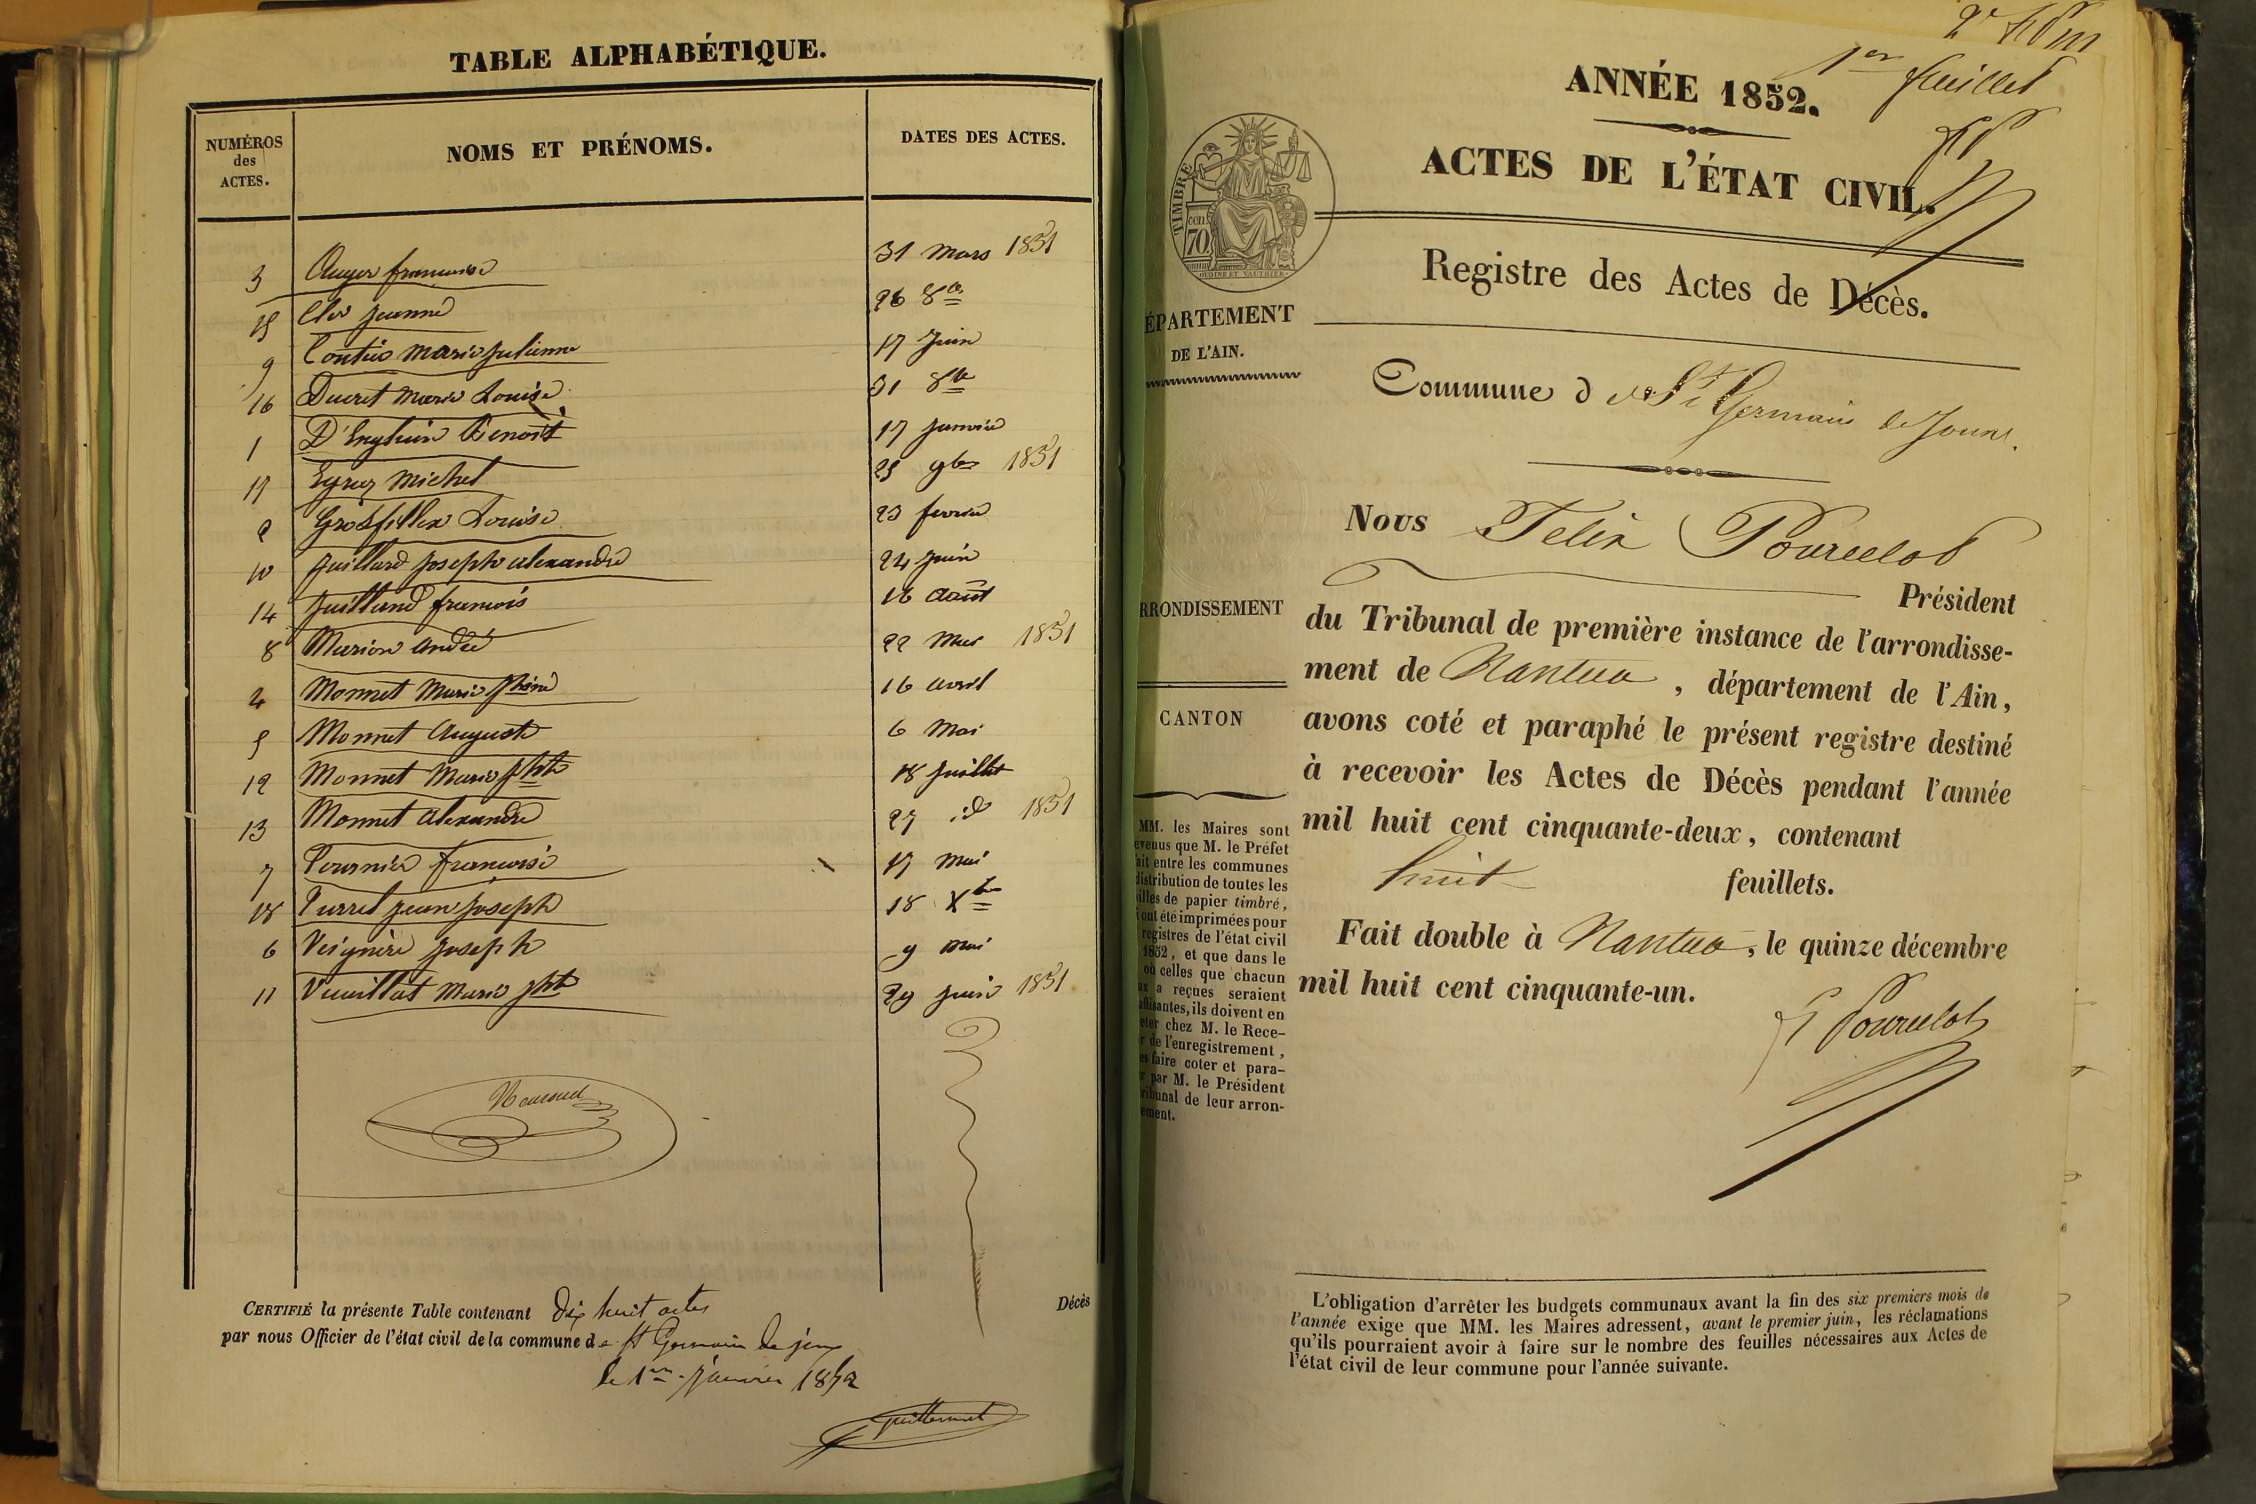 TABLE ALPHABÉTIQUE.
NUMÉROS des ACTES. NOMS ET PRÉNOMS. DATES DES ACTES.
3 Auger francoise 31 mars 1851
15 Cler jeanne 26 8bre
9 marie julienne 17 juin
16 Ducret Marie Louise 31 8bre
1 D'Enghuin Benoit 17 janvier
17 michel 25 9bre 1851
2 Grosfillex Louise 23 fevrier
10 juilland joseph alexandre 24 juin
14 juilland francois 16 août
8 Marion andré 22 Mai 1851
4 Monnet Marie 16 avril
5 Monnet Auguste 6 Mai
12 Monnet Marie jphte 18 juillet
13 Monnet alexandre 27 id 1851
7 francoise 17 mai
18 jean joseph 18 Xbre
6 joseph 9 mai
11 Vuaillat Marie jphte 29 juin 1851
CERTIFIÉ la présente Table contenant dix huit actes
Décès
par nous Officier de l'état civil de la commune de St Germain de joux
le 1er janvier 1852
Guillermet
1er feuillet
ANNÉE 1852.
ACTES DE L'ÉTAT CIVIL.
TIMBRE
70
Registre des Actes de Décès.
ÉPARTEMENT
DE L'AIN.
Commune d e St Germain de Joux.
Nous Felix Pourcelot
Président
RRONDISSEMENT
du Tribunal de première instance de l'arrondisse-
ment de Nantua, département de l'Ain,
CANTON
avons coté et paraphé le présent registre destiné
à recevoir les Actes de Décès pendant l'année
mil huit cent cinquante-deux, contenant
huit feuillets.
Fait double à Nantua, le quinze décembre
mil huit cent cinquante-un.
F Pourcelot
MM. les Maires sont
evenus que M. le Préfet
ait entre les communes
distribution de toutes les
illes de papier timbré,
i ont été imprimées pour
registres de l'état civil
1852, et que dans le
où celles que chacun
ux a reçues seraient
ffisantes, ils doivent en
eter chez M. le Rece-
r de l'enregistrement,
es faire coter et para-
r par M. le Président
ribunal de leur arron-
ement.
L'obligation d'arrêter les budgets communaux avant la fin des six premiers mois de
l'année exige que MM. les Maires adressent, avant le premier juin, les réclamations
qu'ils pourraient avoir à faire sur le nombre des feuilles nécessaires aux Actes de
l'état civil de leur commune pour l'année suivante.